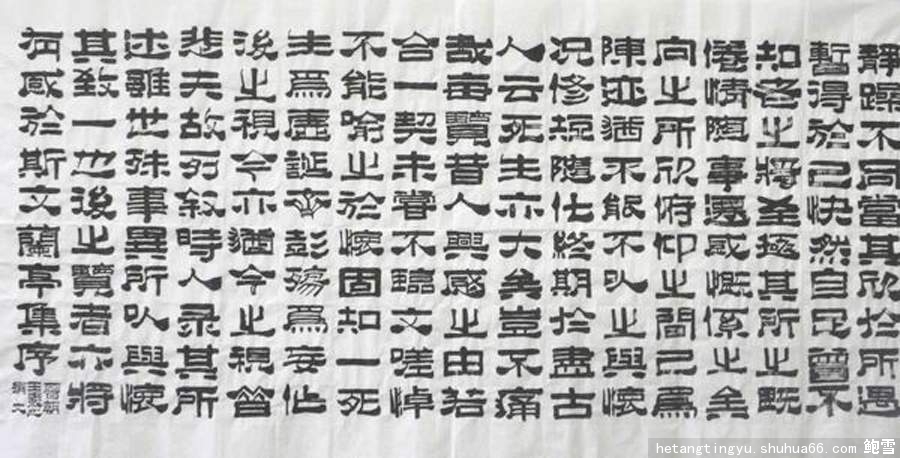 靜躁不同當其欣於所遇
暫得於己快然自足曾不
知老之將至極其所之既
倦情隨事遷感慨係之矣
向之所欣俯仰之間已爲
陳迹猶不能不以之興懷
况修短隨化終期於盡古
人云死生亦大矣豈不痛
哉每覽昔人興感之由若
合一契未嘗不臨文嗟悼
不能喻之於懷固知一死
生爲虛誕齊彭殤爲妄作
後之視今亦猶今之視昔
悲夫故列叙時人录其所
述雖世殊事異所以興懷
其致一也後之覽者亦將
有感於斯文蘭亭集序
晉朝
王羲之
撰文
hetangtingyu.shuhua66.com 鲍雪